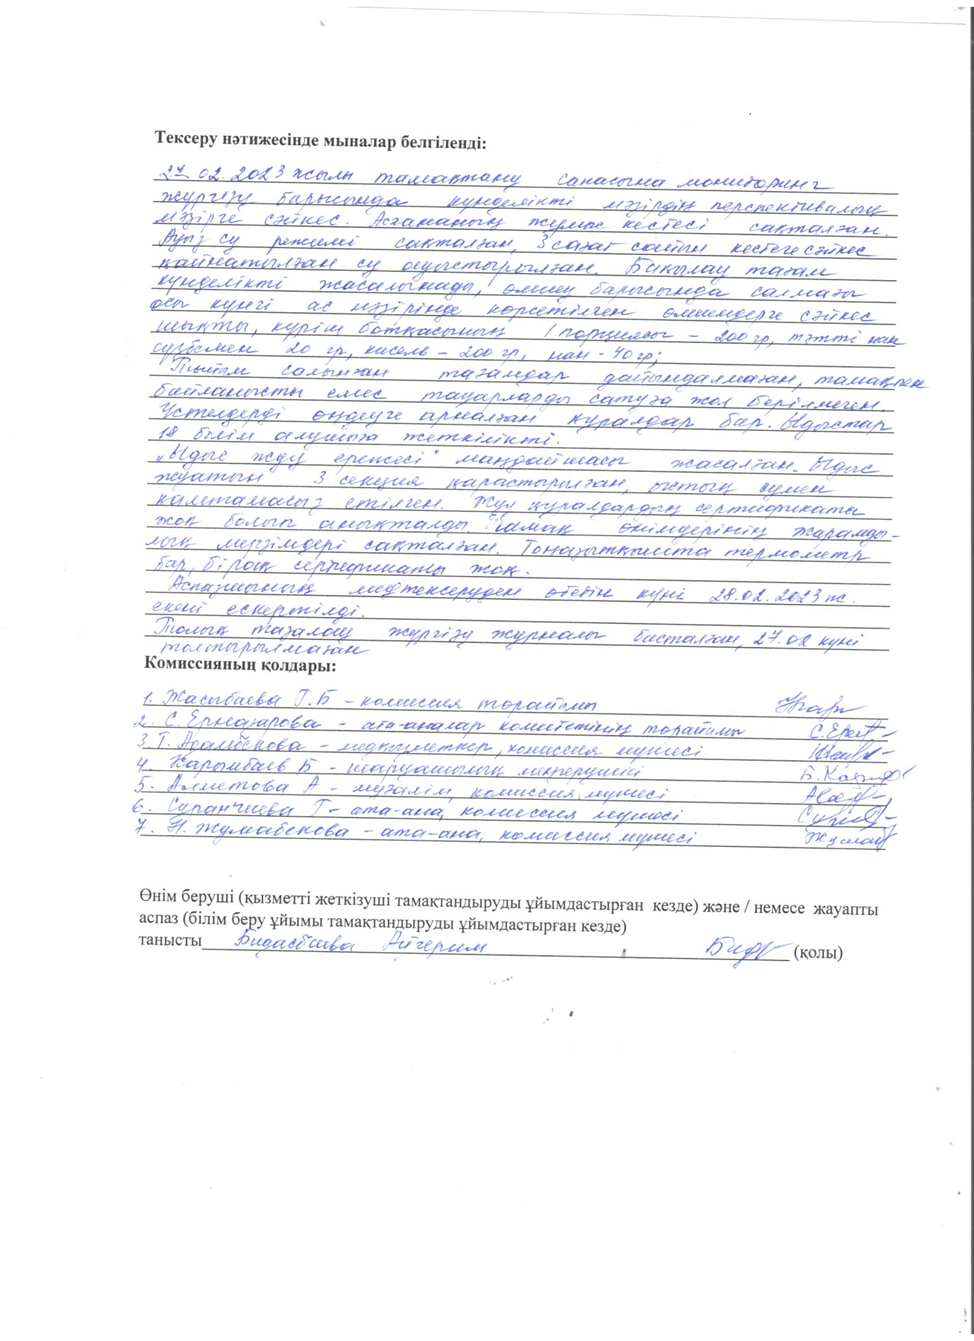 Тексеру нәтижесінде мыналар белгіленді:
27.02.2023 жылы тамақтану сапасына мониторинг
жүргізу барысында күнделікті мәзірдің перспективалық
мәзірге сәйкес. Асхананың жұмыс кестесі сақталған.
Ауыз су режимі сақталған, 3 сағат сайын кестеге сәйкес
қайнатылған су ауыстырылған. Бақылау тағам
күнделікті жасалынады, өлшеу барысында салмағы
осы күнгі ас мәзірінде көрсетілген өлшемдерге сәйкес
шықты, күріш ботқасының 1 порциясы - 200 гр, тәтті нан
сүзбемен 20 гр, кисель - 200 гр, нан - 40 гр;
Тыйым салынған тағамдар дайындалмаған, тамақпен
байланысты емес тауарларды сатуға жол берілмеген.
Үстелдерді өңдеуге арналған құралдар бар. Ыдыстар
18 білім алушыға жеткілікті.
"Ыдыс жуу ережесі" маңдайшасы жасалған. Ыдыс
жуатын 3 секция қарастырылған, ыстық сумен
қамтамасыз етілген. Жуу құралдардың сертификаты
жоқ болып анықталды. Тамақ өнімдерінің жарамды-
лық мерзімдері сақталған. Тоңазытқышта термометр
бар, бірақ сертификаты жоқ.
Аспазшының медтексеруден өтетін күні 28.02.2023 ж.
екені ескертілді.
Толық тазалау жүргізу журналы басталған, 27.02 күні
толтырылмаған
Комиссияның қолдары:
1. Жасыбаева Г.Б - комиссия төрайымы
2. С. Ерназарова - ата-аналар комитетінің төрайымы С.Ерн
3. Т. Адамбекова - медқызметкер, комиссия мүшесі
4. Карымбаев Б - шаруашылық меңгерушісі Б.Кары
5. Ахметова А - мұғалім, комиссия мүшесі
6. Суранчиева Г - ата-ана, комиссия мүшесі
7. Н. Жумабекова - ата-ана, комиссия мүшесі Жумаб
Өнім беруші (қызметті жеткізуші тамақтандыруды ұйымдастырған кезде) және / немесе жауапты
аспаз (білім беру ұйымы тамақтандыруды ұйымдастырған кезде)
танысты Бидасбаева Айгерим (қолы)